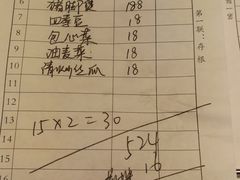 6 猪脚煲 188
7 四季豆 18
8 包心菜 18
9 油麦菜 18
10 清炒丝瓜 18
11
12
13 15×2=30
14 524
15 16
16
第一联:存根